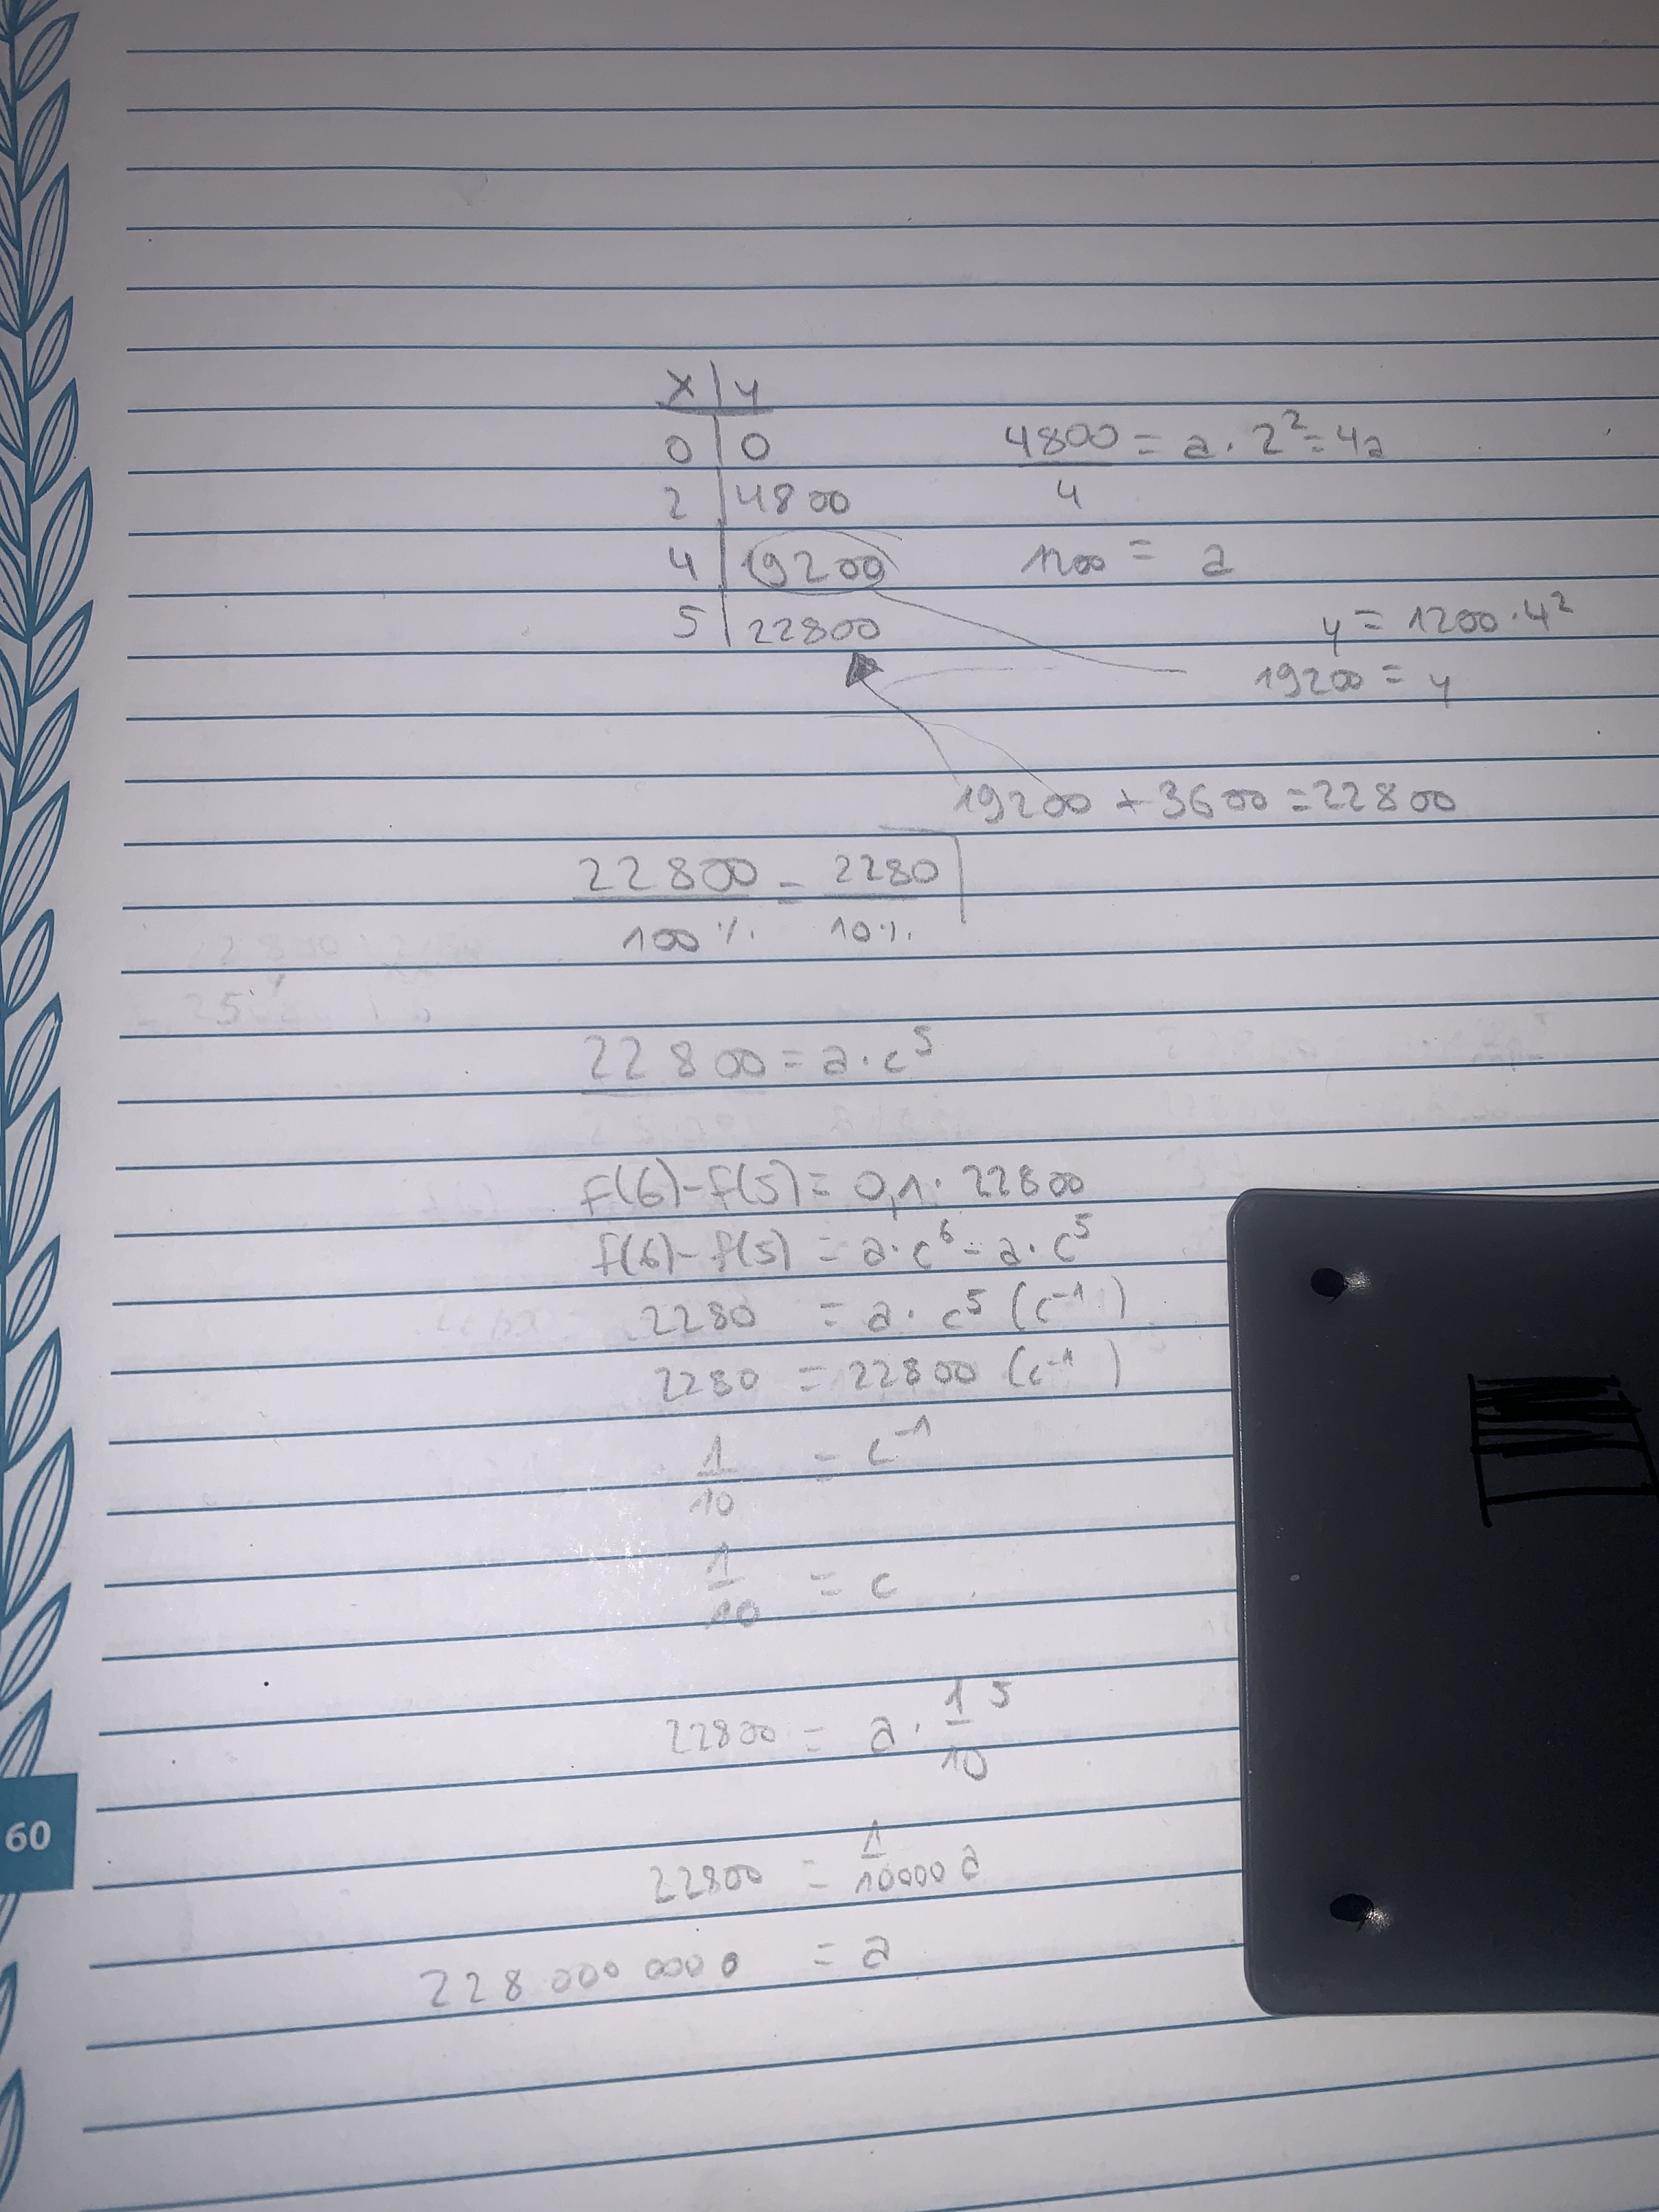 x | y
0 | 0
2 | 4800
4 | 19200
5 | 22800
4800/4 = a · 2² = 4a
1200 = a
y = 1200 · 4²
19200 = y
19200 + 3600 = 22800
22800/100% = 2280/10%
22800 = a · c⁵
f(6) - f(5) = 0,1 · 22800
f(6) - f(5) = a · c⁶ - a · c⁵
2280 = a · c⁵ (c⁻¹)
2280 = 22800 (c⁻¹)
1/10 = c⁻¹
1/10 = c
22800 = a · 1/10 ⁵
22800 = 1/10000 a
228 000 000 0 = a
60